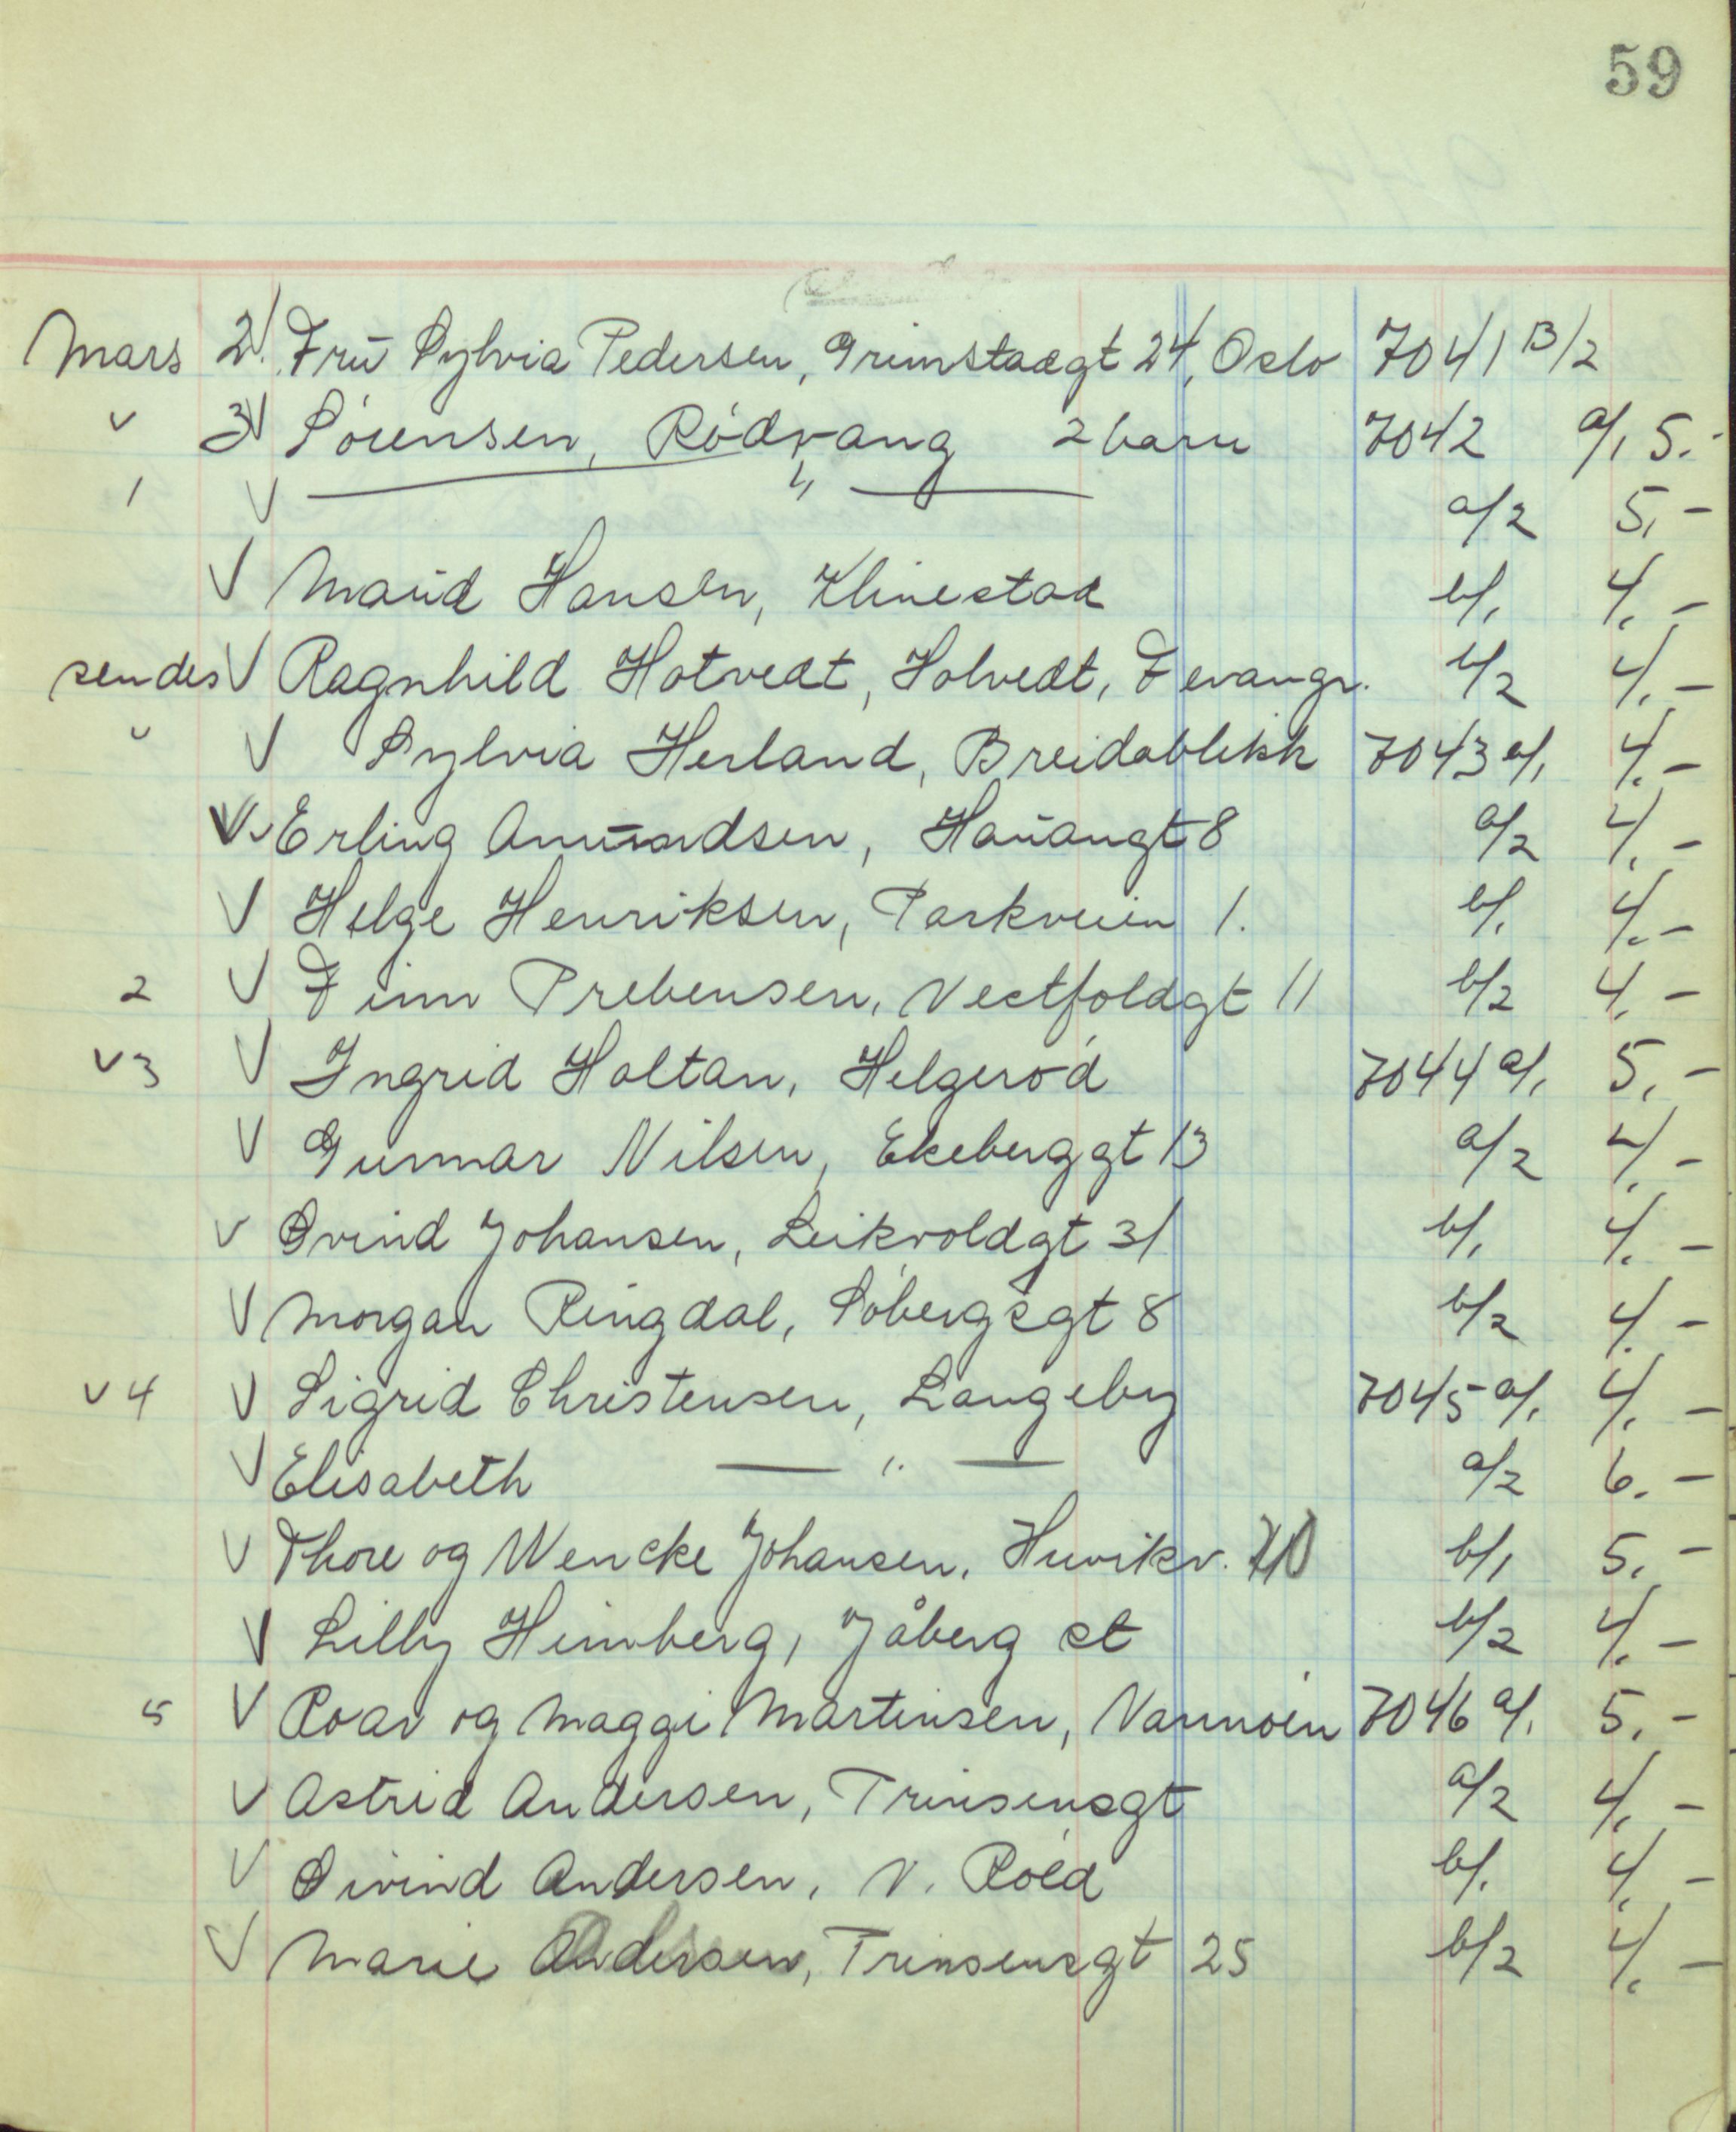 59
Mars 2. V Frū Sylvia Pedersen, Grimstadgt 24, Oslo 7041 B/2
" 3 V Sørensen, Rødvang 2 barn 7042 a/1 5.-
1 V — " — a/2 5,-
V Maūd Hansen, Klinestad b/1 4.-
sendes V Ragnhild Hotvedt, Holvedt, Fevangr. b/2 4.-
" V Sylvia Herland, Breidablikk 7043 a/1 4.-
V Erling Amūndsen, Haūangt 8 a/2 4.-
V Helge Henriksen, Parkveien 1. b/1 4.-
2 V Finn Prebensen, Vestfoldgt 11 b/2 4.-
V 3 V Ingrid Holtan, Helgerød 7044 a/1 5.-
V Gunnar Nilsen, Ekeberggt 13 a/2 4.-
V Øvind Johansen, Leikvoldgt 31 b/1 4.-
V Morgan Ringdal, Søbergsgt 8 b/2 4.-
V 4 V Sigrid Christensen, Langeby 7045 a/1 4.-
V Elisabeth — " — a/2 6.-
V Thore og Wencke Johansen, Huvikv. b/1 5.-
V Lilly Heimberg, Jåberg st b/2 4.-
5 V Roar og Maggi Martinsen, Vannøen 7046 a/1 5.-
V Astrid Andersen, Trinsensgt a/2 4.-
V Øivind Andersen, N. Røed b/1 4.-
V Marie Andersen, Trinsensgt 25 b/2 4.-